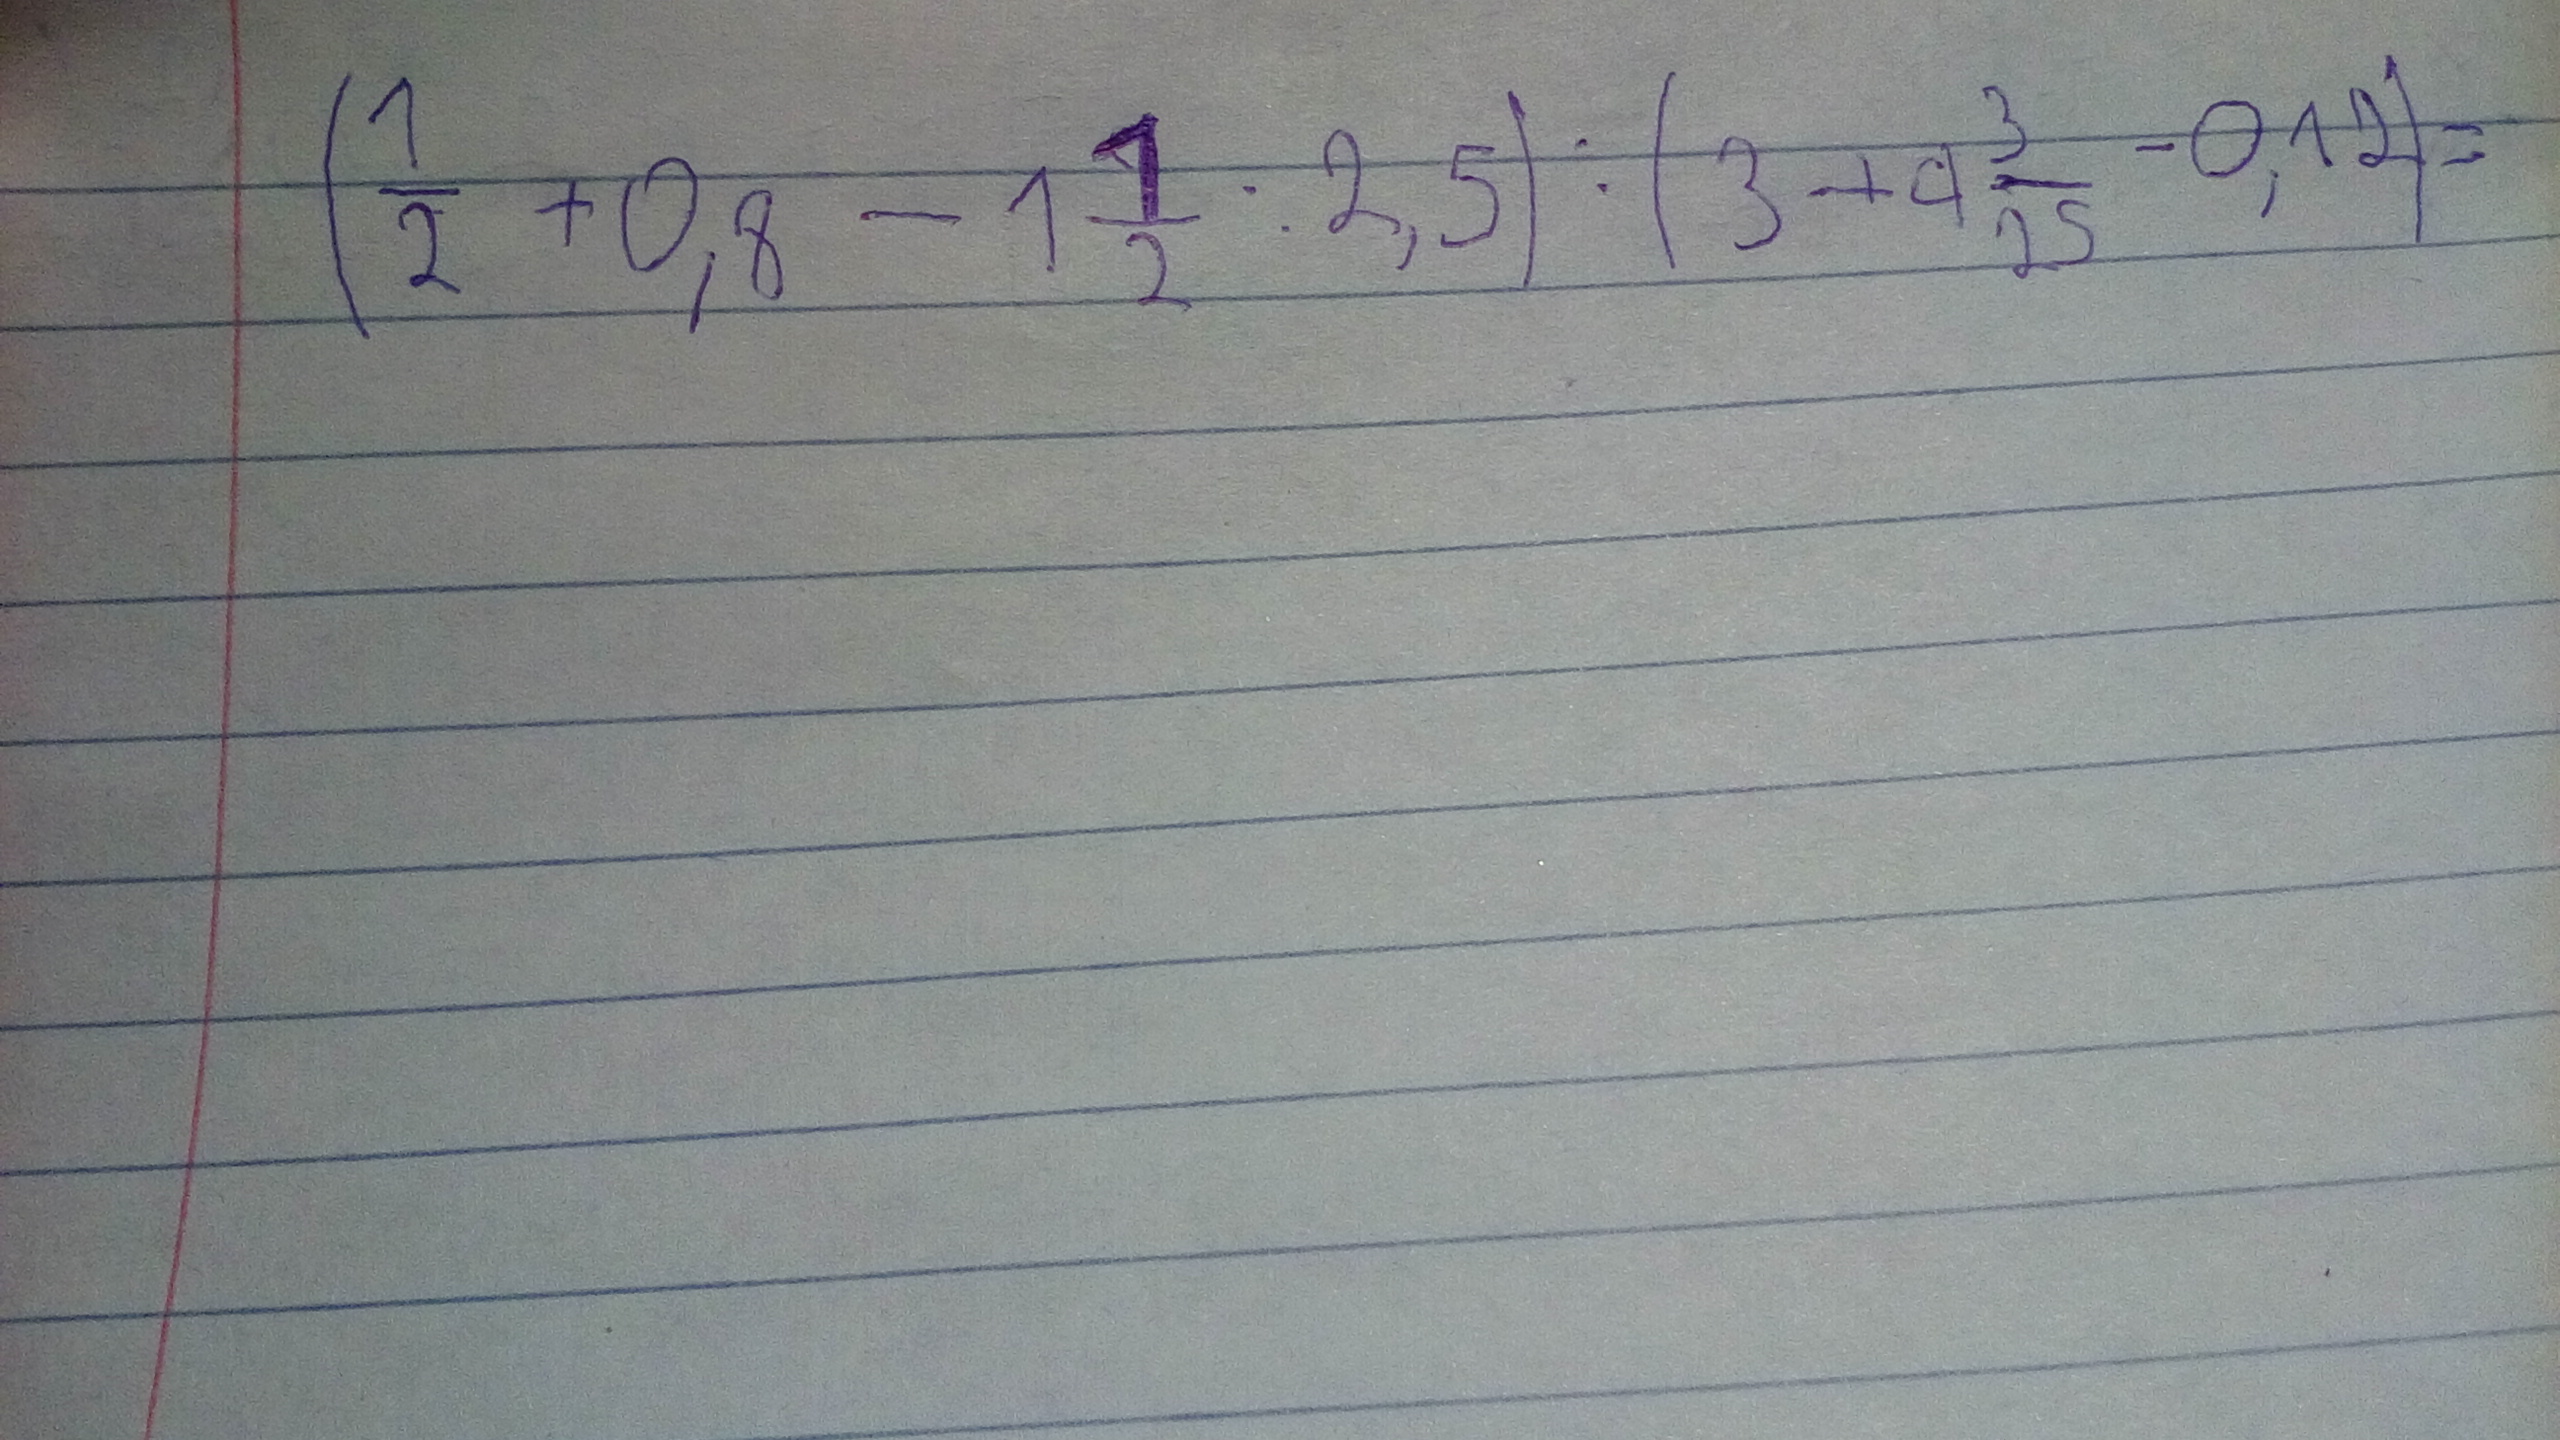 (1/2 + 0,8 - 1 1/2 : 2,5) : (3 + 4 3/25 - 0,12) =